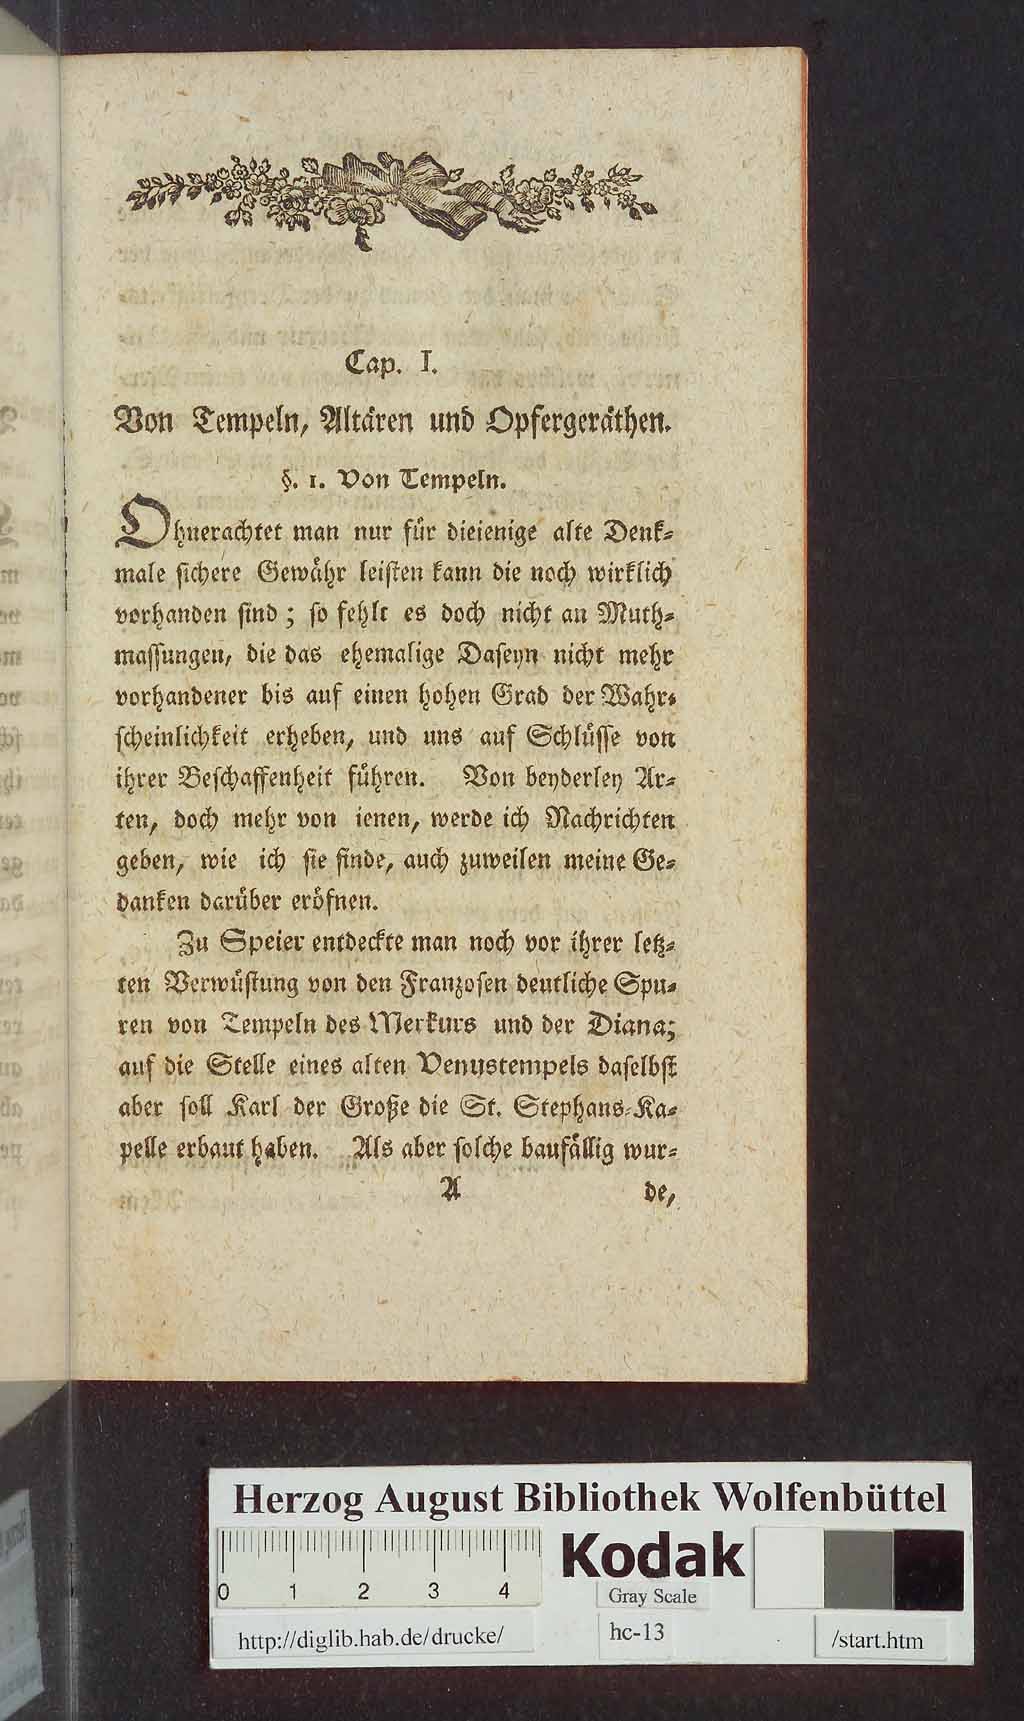 Cap. I.
Von Tempeln, Altären und Opfergeräthen.
§. 1. Von Tempeln.
Ohnerachtet man nur für dieienige alte Denk-
male sichere Gewähr leisten kann die noch wirklich
vorhanden sind; so fehlt es doch nicht an Muth-
massungen, die das ehemalige Daseyn nicht mehr
vorhandener bis auf einen hohen Grad der Wahr-
scheinlichkeit erheben, und uns auf Schlüsse von
ihrer Beschaffenheit führen. Von beyderley Ar-
ten, doch mehr von ienen, werde ich Nachrichten
geben, wie ich sie finde, auch zuweilen meine Ge-
danken darüber eröfnen.
Zu Speier entdeckte man noch vor ihrer letz-
ten Verwüstung von den Franzosen deutliche Spu-
ren von Tempeln des Merkurs und der Diana;
auf die Stelle eines alten Venustempels daselbst
aber soll Karl der Große die St. Stephans-Ka-
pelle erbaut haben. Als aber solche baufällig wur-
A de,
Herzog August Bibliothek Wolfenbüttel
0 1 2 3 4
Kodak
Gray Scale
http://diglib.hab.de/drucke/ hc-13 /start.htm